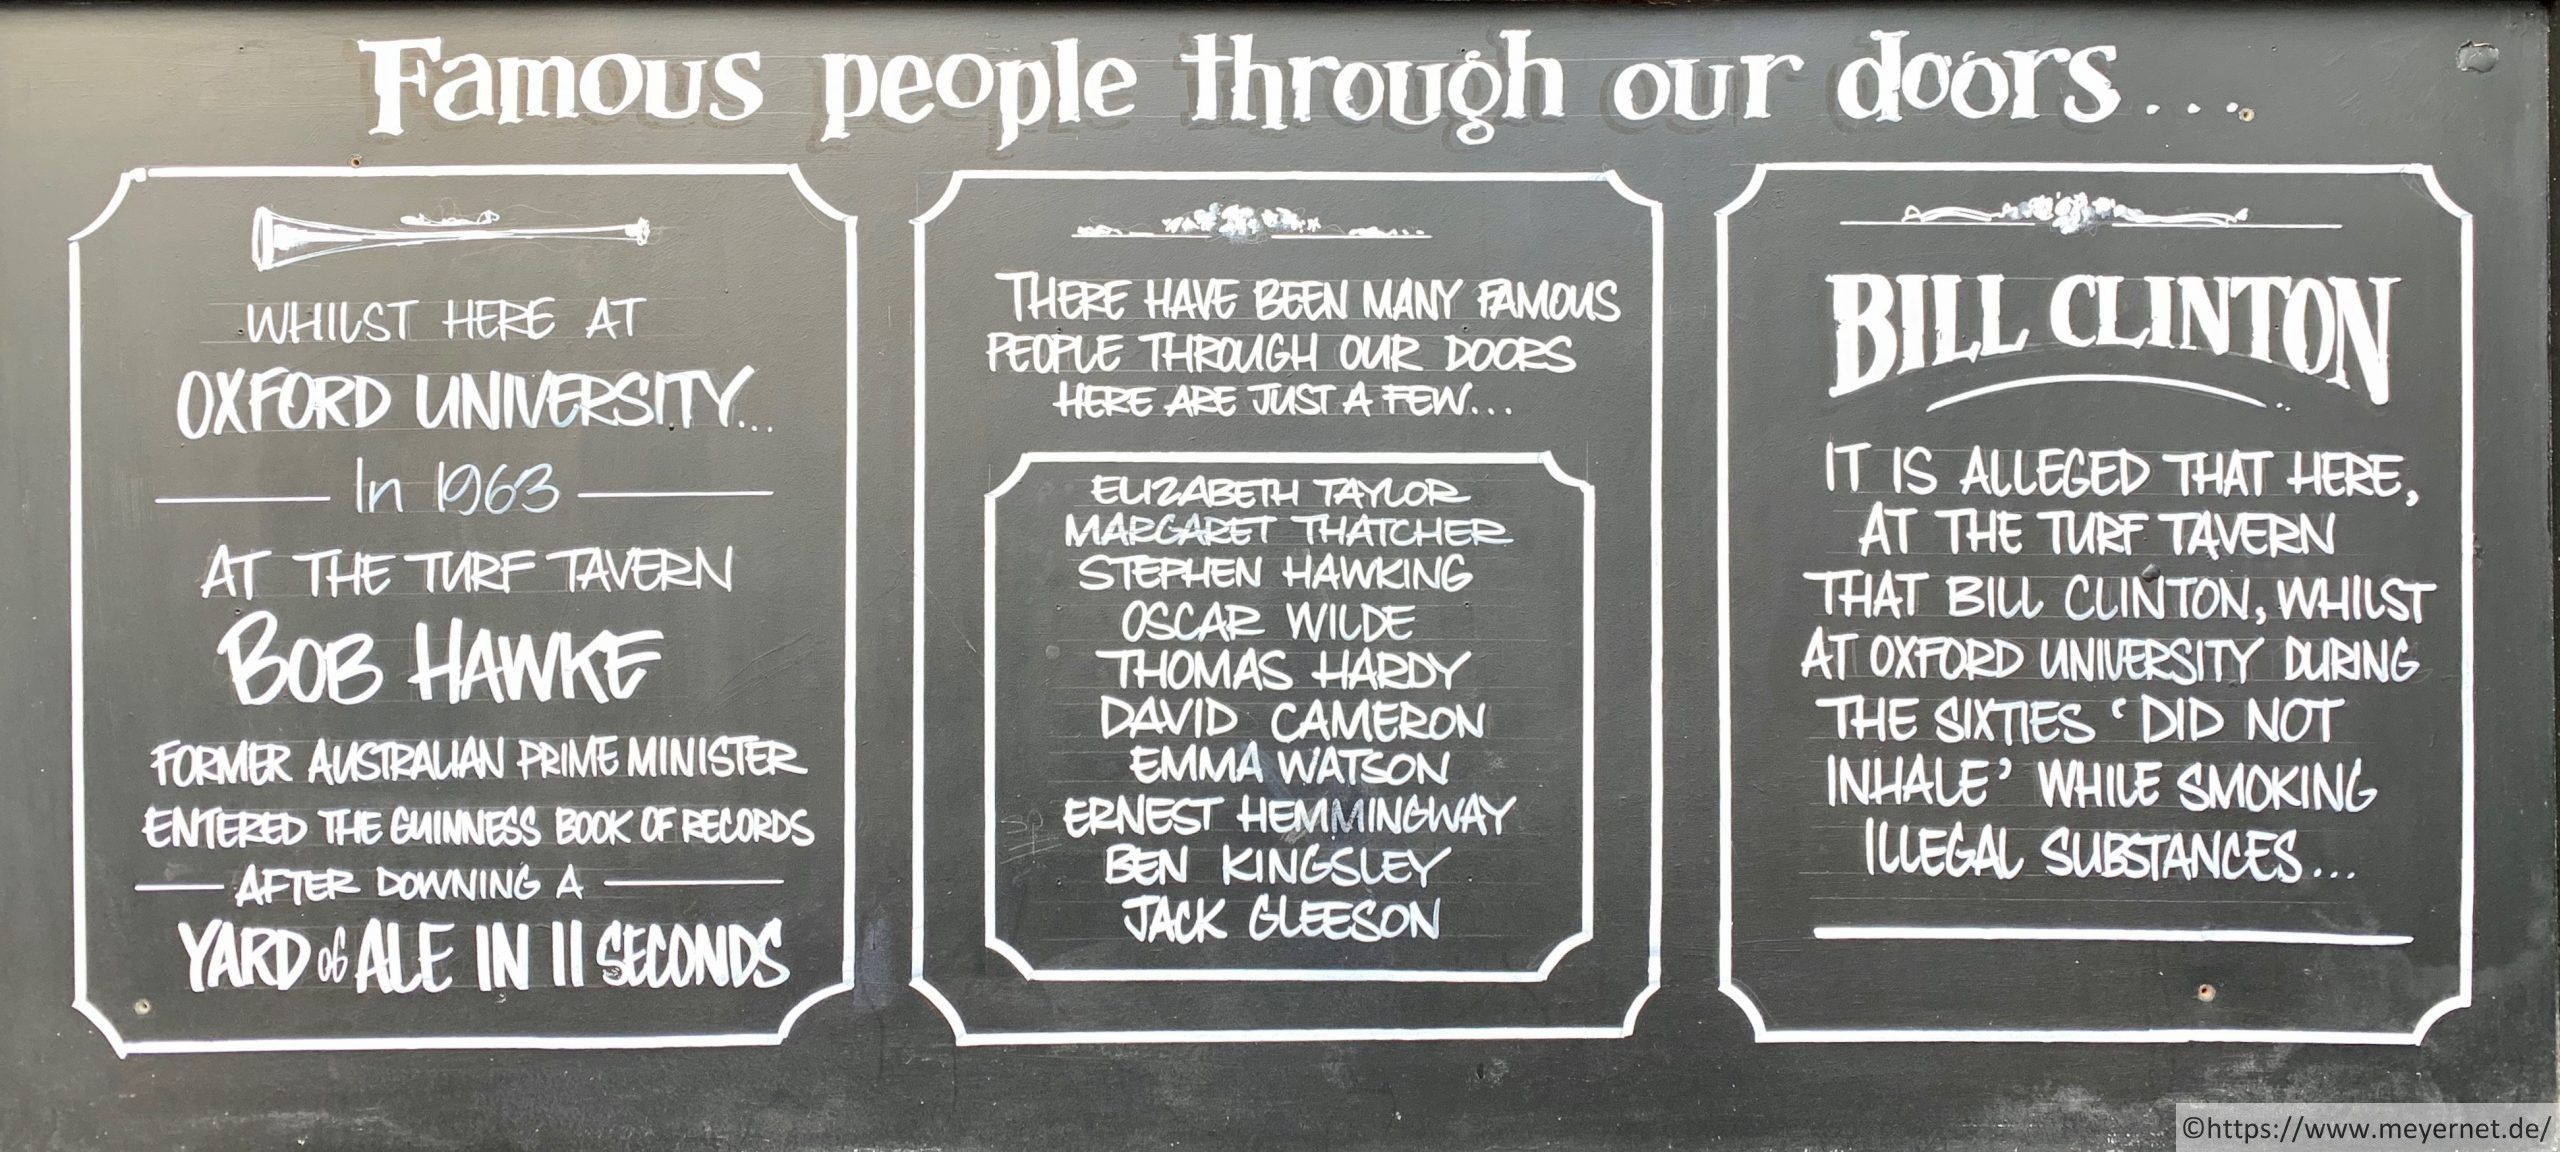 Famous people through our doors...
WHILST HERE AT
OXFORD UNIVERSITY...
In 1963
AT THE TURF TAVERN
BOB HAWKE
FORMER AUSTRALIAN PRIME MINISTER
ENTERED THE GUINNESS BOOK OF RECORDS
AFTER DOWNING A
YARD of ALE IN 11 SECONDS
THERE HAVE BEEN MANY FAMOUS
PEOPLE THROUGH OUR DOORS
HERE ARE JUST A FEW...
ELIZABETH TAYLOR
MARGARET THATCHER
STEPHEN HAWKING
OSCAR WILDE
THOMAS HARDY
DAVID CAMERON
EMMA WATSON
ERNEST HEMMINGWAY
BEN KINGSLEY
JACK GLEESON
BILL CLINTON
IT IS ALLEGED THAT HERE,
AT THE TURF TAVERN
THAT BILL CLINTON, WHILST
AT OXFORD UNIVERSITY DURING
THE SIXTIES ‘DID NOT
INHALE’ WHILE SMOKING
ILLEGAL SUBSTANCES...
©https://www.meyernet.de/